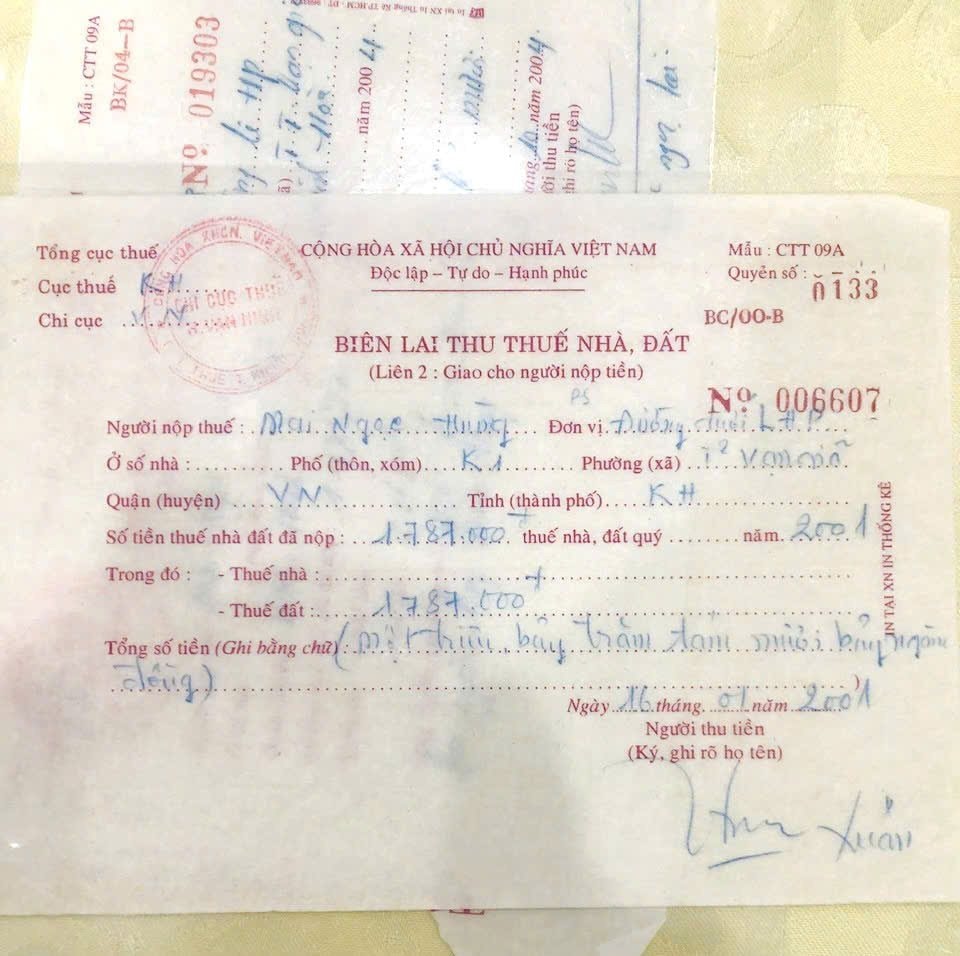 In tại XN In Thống Kê TP.HCM - ĐT
Mẫu : CTT 09A
BK/04-B
Nº 019303
năm 2004
năm 2004
ười thu tiền
ghi rõ họ tên)
Tổng cục thuế
CỘNG HÒA XÃ HỘI CHỦ NGHĨA VIỆT NAM
Mẫu : CTT 09A
Cục thuế K.H
Độc lập – Tự do – Hạnh phúc
Quyển số : 0133
Chi cục V.N
CHI CỤC THUẾ
H. VẠN NINH
BC/00-B
BIÊN LAI THU THUẾ NHÀ, ĐẤT
(Liên 2 : Giao cho người nộp tiền)
PS
Nº 006607
Người nộp thuế : Mai Ngọc Hùng Đơn vị Đường L.H.P
Ở số nhà : Phố (thôn, xóm) K1 Phường (xã) T2 Vạn Giã
Quận (huyện) V.N Tỉnh (thành phố) K H
Số tiền thuế nhà đất đã nộp : 1.787.000 thuế nhà, đất quý năm 2001
Trong đó : - Thuế nhà :
- Thuế đất : 1787.000
Tổng số tiền (Ghi bằng chữ) (Một triệu bảy trăm tám mươi bảy ngàn
đồng)
Ngày 16 tháng 01 năm 2001
Người thu tiền
(Ký, ghi rõ họ tên)
Xuân
IN TẠI XN IN THỐNG KÊ